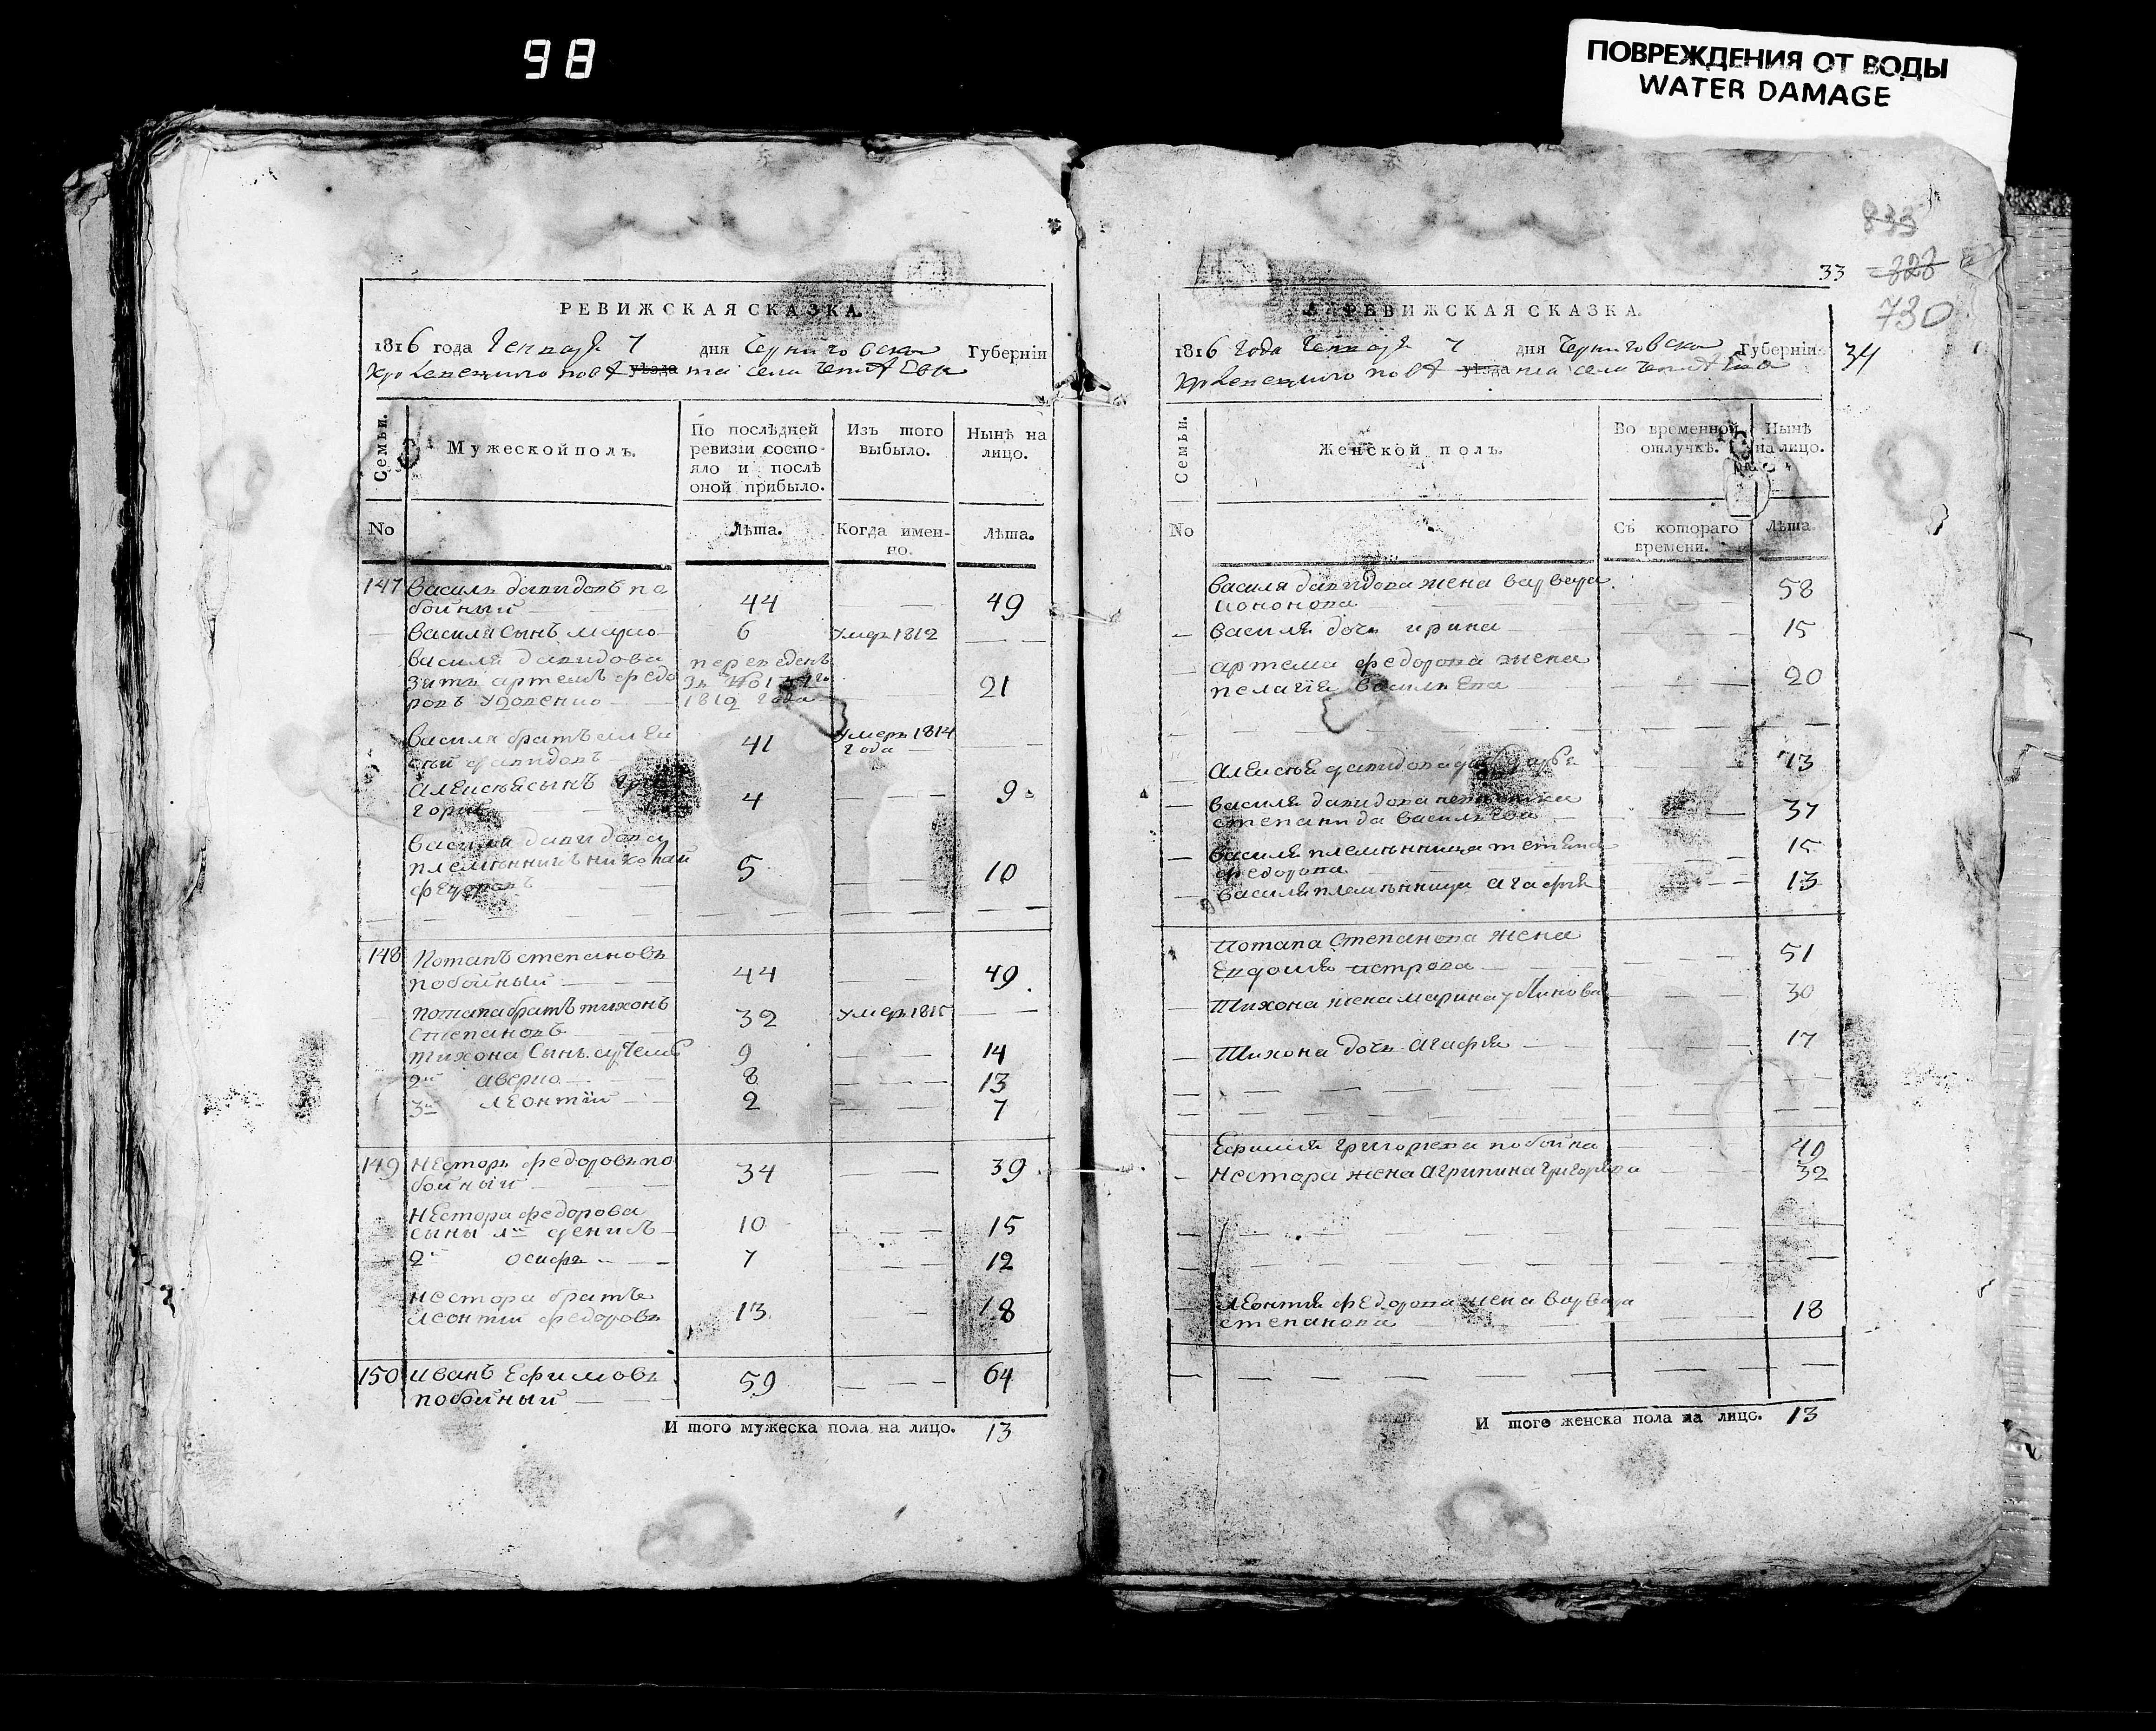 98
ПОВРЕЖДЕНИЯ ОТ ВОДЫ
WATER DAMAGE
РЕВИЖСКАЯ СКАЗКА.
1816 года Генваря 7 дня Черниговской Губерніи
уѣзда села
Семьи.
Мужеской полъ.
По послѣдней ревизіи состояло и послѣ оной прибыло.
Изъ того выбыло.
Нынѣ на лицо.
No
Лѣта.
Когда именно.
Лѣта.
147 Василь давидовъ по
бойный 44 49
Василя сынъ марко 6 умеръ 1812
Василя давидова переведенъ
зять артемъ федо 21
ровъ 1812 года
Василя братъ алек 41 умеръ 1814
сей давидовъ года
Алексея сынъ гри 4 9
горій
Василя давидова
племянникъ николай 5 10
федоровъ
148 Потапъ степановъ
побойный 44 49
потапа братъ тихонъ 32 умеръ 1815
степановъ
тихона сынъ артемъ 9 14
2й аверко 8 13
3й леонтій 2 7
149 Несторъ федоровъ по 34 39
бойный
Нестора федорова
сыны 1й денисъ 10 15
2й осифъ 7 12
нестора братъ
леонтій федоровъ 13 18
150 иванъ Ефимовъ 59 64
побойный
И того мужеска пола на лицо. 13
833
33 328
730
РЕВИЖСКАЯ СКАЗКА.
1816 года Генваря 7 дня Черниговской Губерніи 34
уѣзда села
Семьи.
Женской полъ.
Во временной отлучкѣ.
Нынѣ на лицо.
No
Съ котораго времени.
Лѣта.
Василя давидова жена варвара 58
кононова
Василя дочь ирина 15
артема федорова жена
пелагія васильева 20
Алексея давидова 73
Василя давидова невестка 37
степанида васильева
Василя племянница 15
федорова
Василя племянница агафія 13
Потапа степанова жена
Евдокія петрова 51
Тихона жена марина 30
Тихона дочь агафія 17
григорьева побойна 40
Нестора жена агрипина григорьева 32
леонтія федорова жена варвара 18
степанова
И того женска пола на лицо. 13